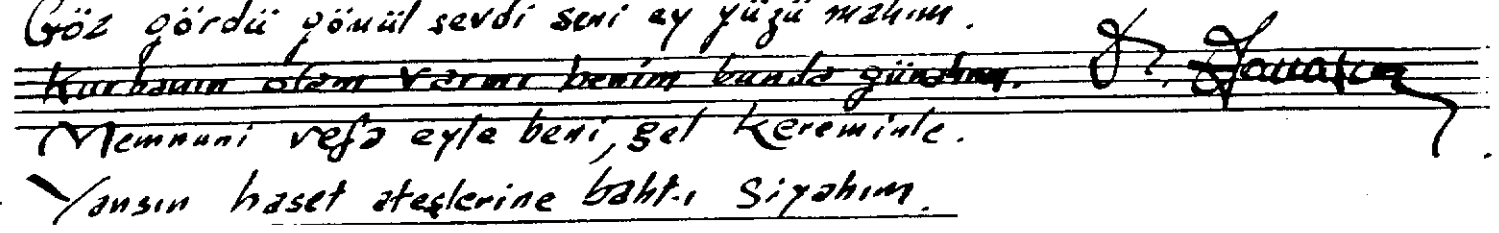 Göz gördü gönül sevdi seni ey yüzü mahım.
Kurbanın olam varmı benim bunda günahım.
Memnuni vefa eyle beni, gel kereminle.
Yansın haset ateşlerine baht-ı siyahım.